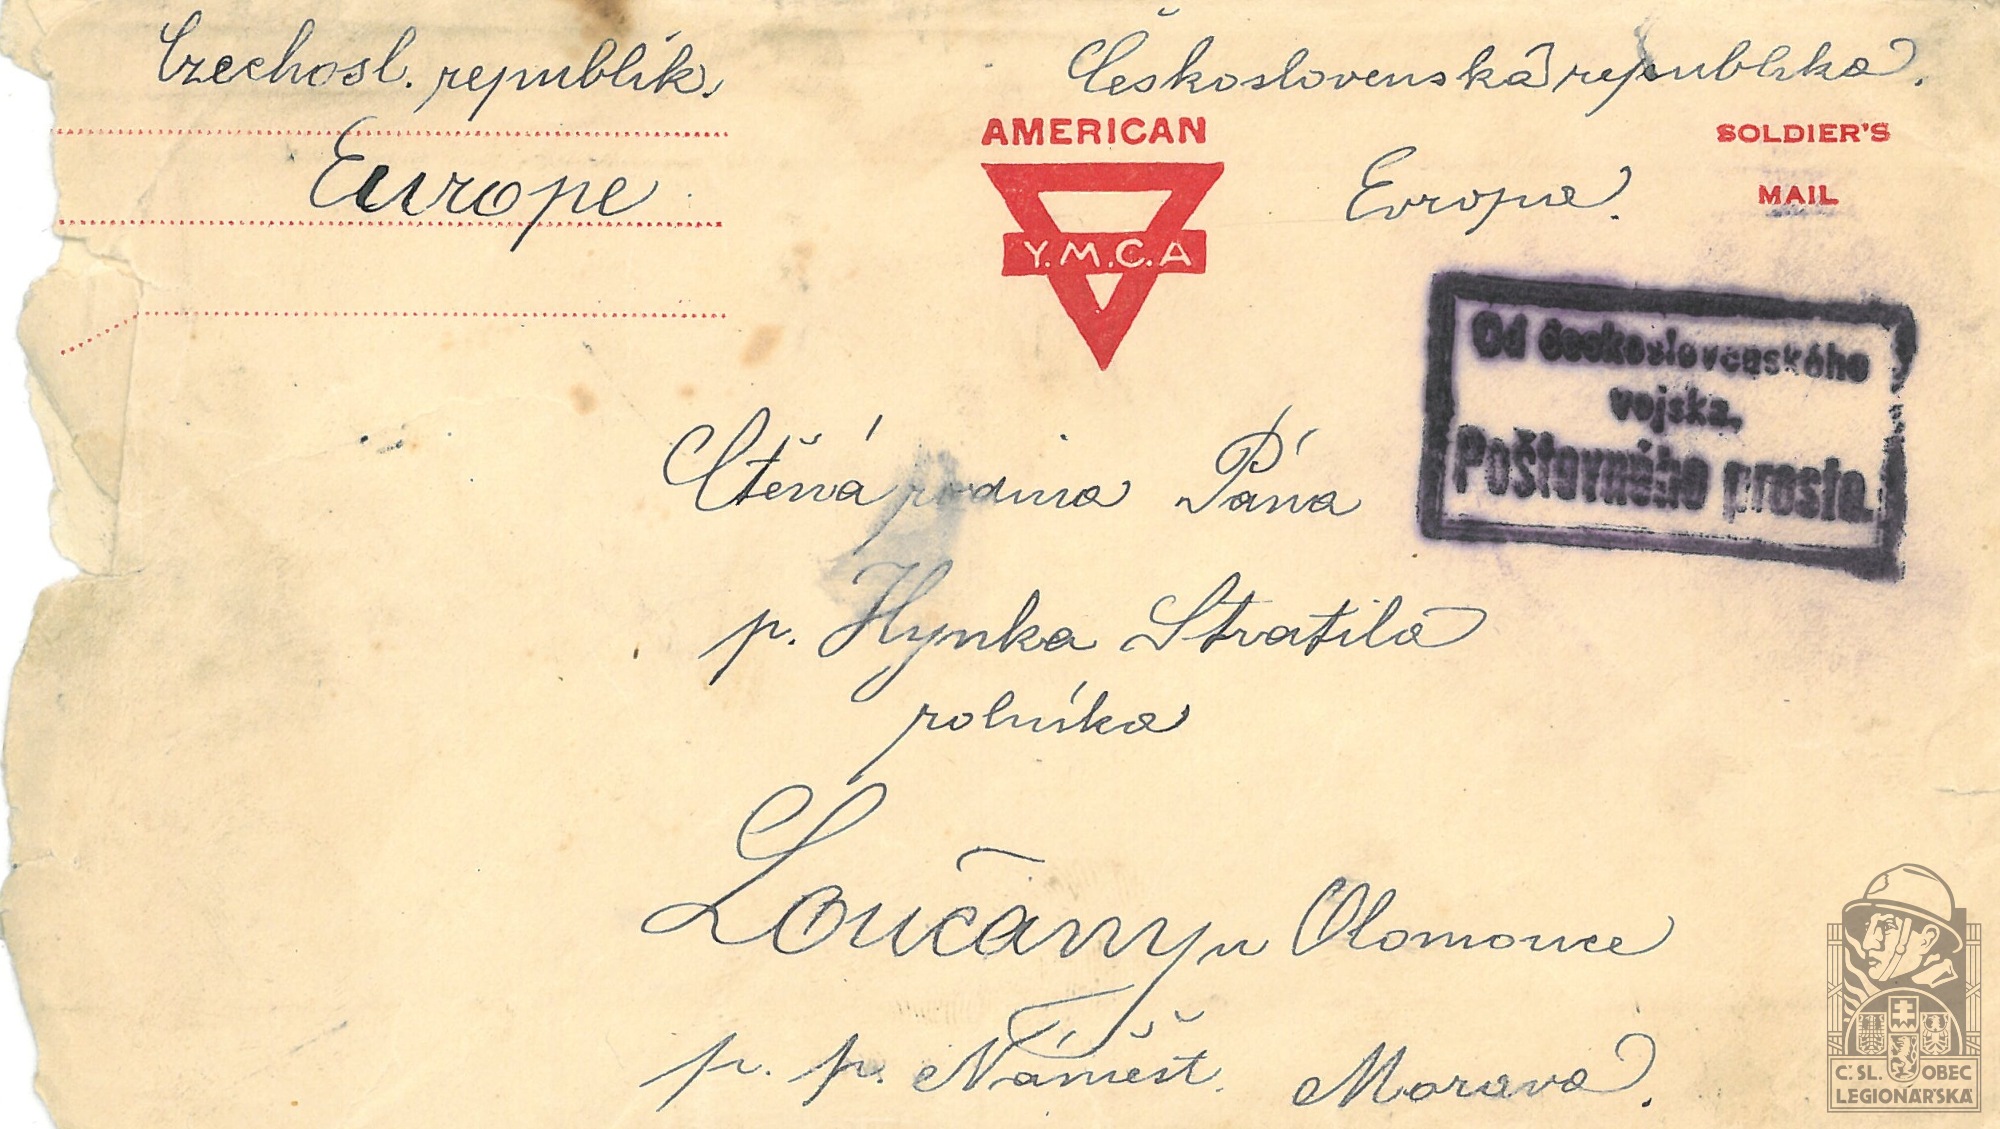 Czechosl. republik.
Československá republika.
AMERICAN
SOLDIER'S
Europe
Evropa.
MAIL
Y.M.C.A
Od československého
vojska.
Poštovného prosto.
Ctěná rodina Pána
p. Hynka Stratila
rolníka
Loučany u Olomouce
p. p. Náměšť. Morava.
Č: SL. OBEC
LEGIONÁŘSKÁ